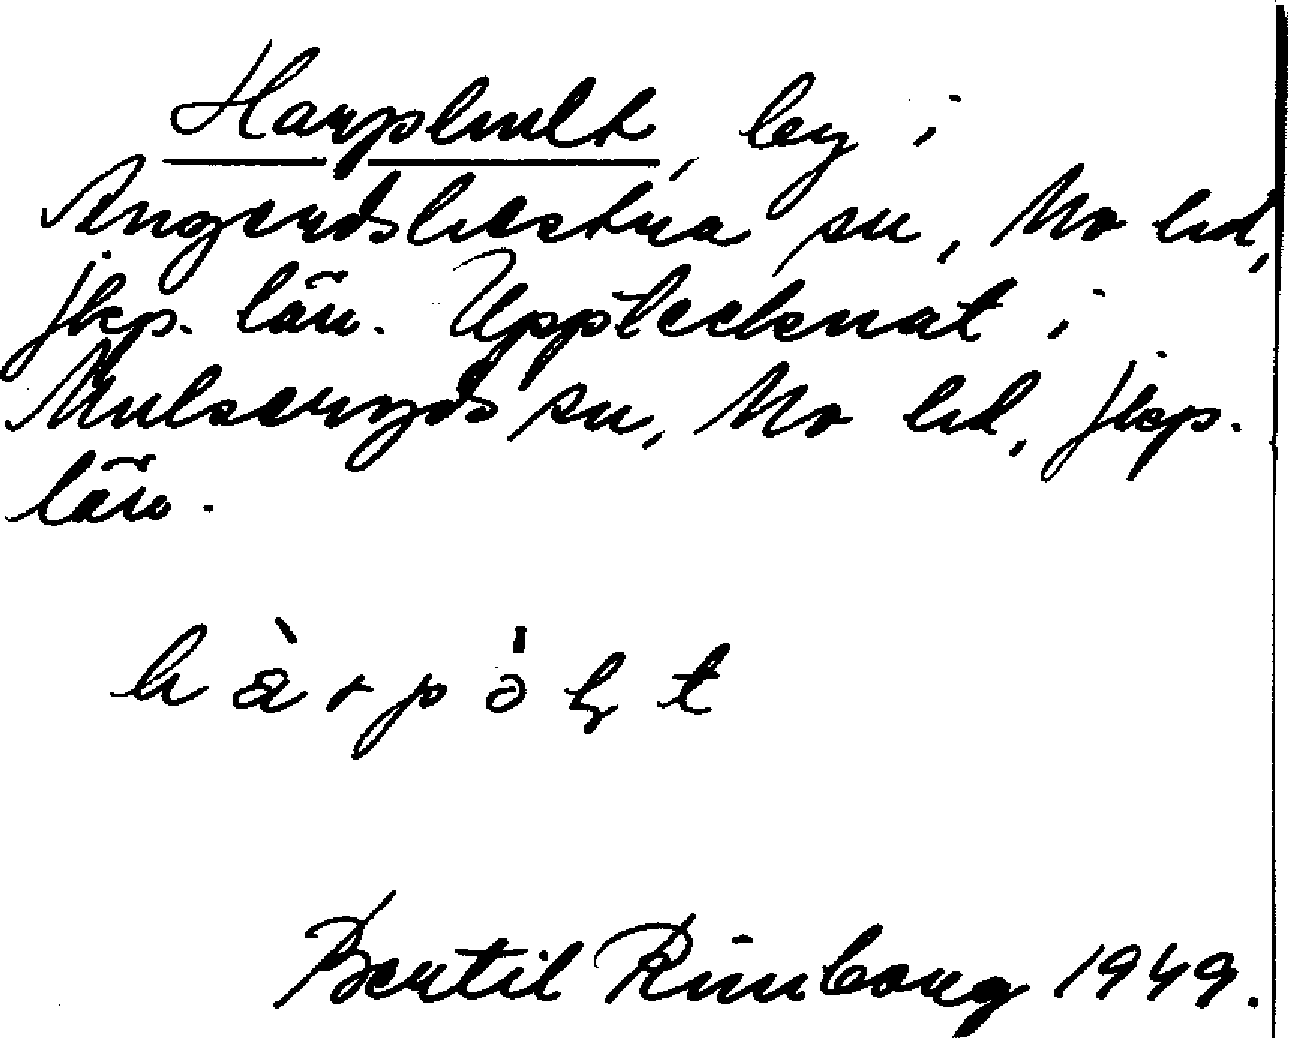 Harphult, by i
Angerdshestra sn, Mo hd,
Jkp. län. Upptecknat i
Mulseryds sn, Mo hd, Jkp.
län.
Bertil Rimborg 1949.